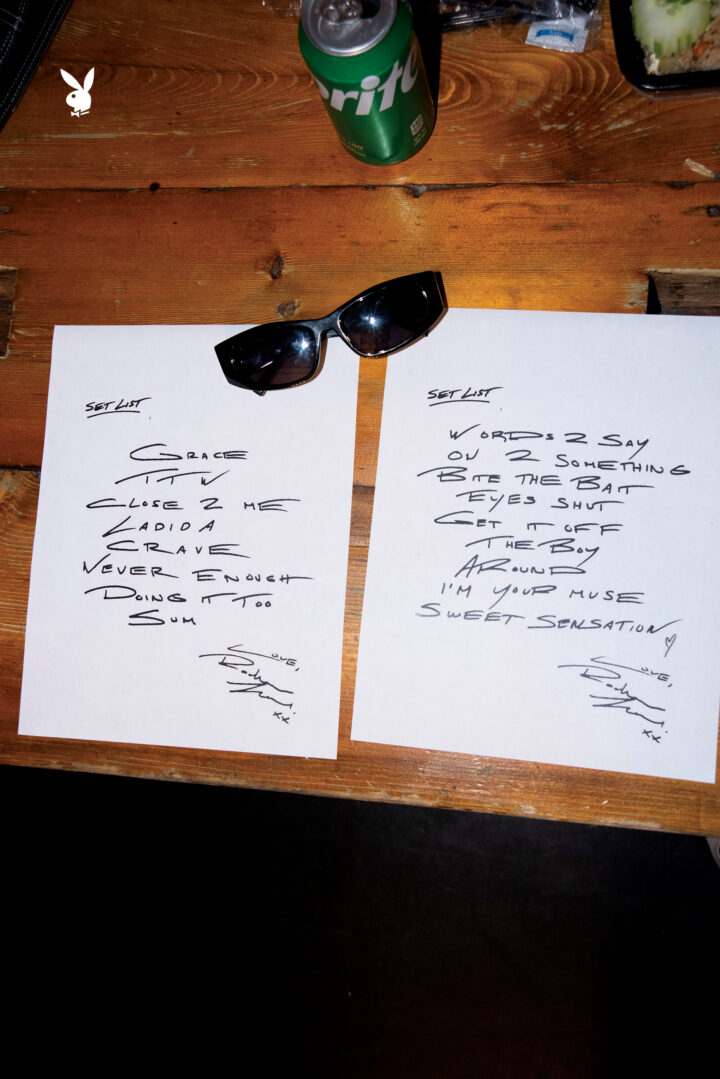 Sprite
SET LIST
GRACE
TTW
CLOSE 2 ME
LADIDA
CRAVE
NEVER ENOUGH
DOING IT TOO
SUM
LOVE,
xx
SET LIST
WORDS 2 SAY
ON 2 SOMETHING
BITE THE BAIT
EYES SHUT
GET IT OFF
THE BOY
AROUND
I'M YOUR MUSE
SWEET SENSATION
LOVE,
xx